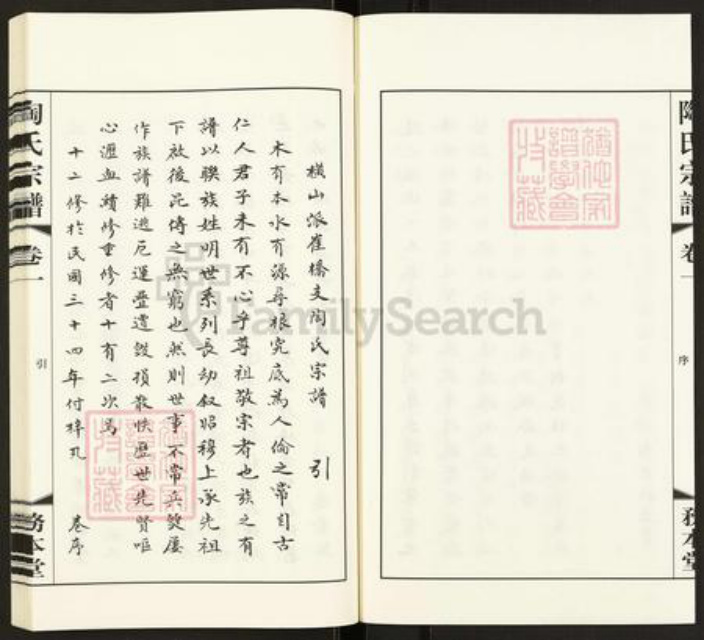 陶氏宗譜
卷一
序
務本堂
猶他家譜學會收藏
橫山派崔橋支陶氏宗譜 引
木有本水有源尋根究底為人倫之常自古
仁人君子未有不心乎尊祖敬宗者也族之有
譜以聯族姓明世系列長幼叙昭穆上承先祖
下啟後昆傳之無窮也然則世事不常兵燹屢
作族譜難逃厄運疊遭毀損散佚歷世先賢嘔
心瀝血續修重修者十有二次焉
十二修於民國三十四年付梓凡 卷序
陶氏宗譜
卷一
引
務本堂
猶他家譜學會收藏
FamilySearch